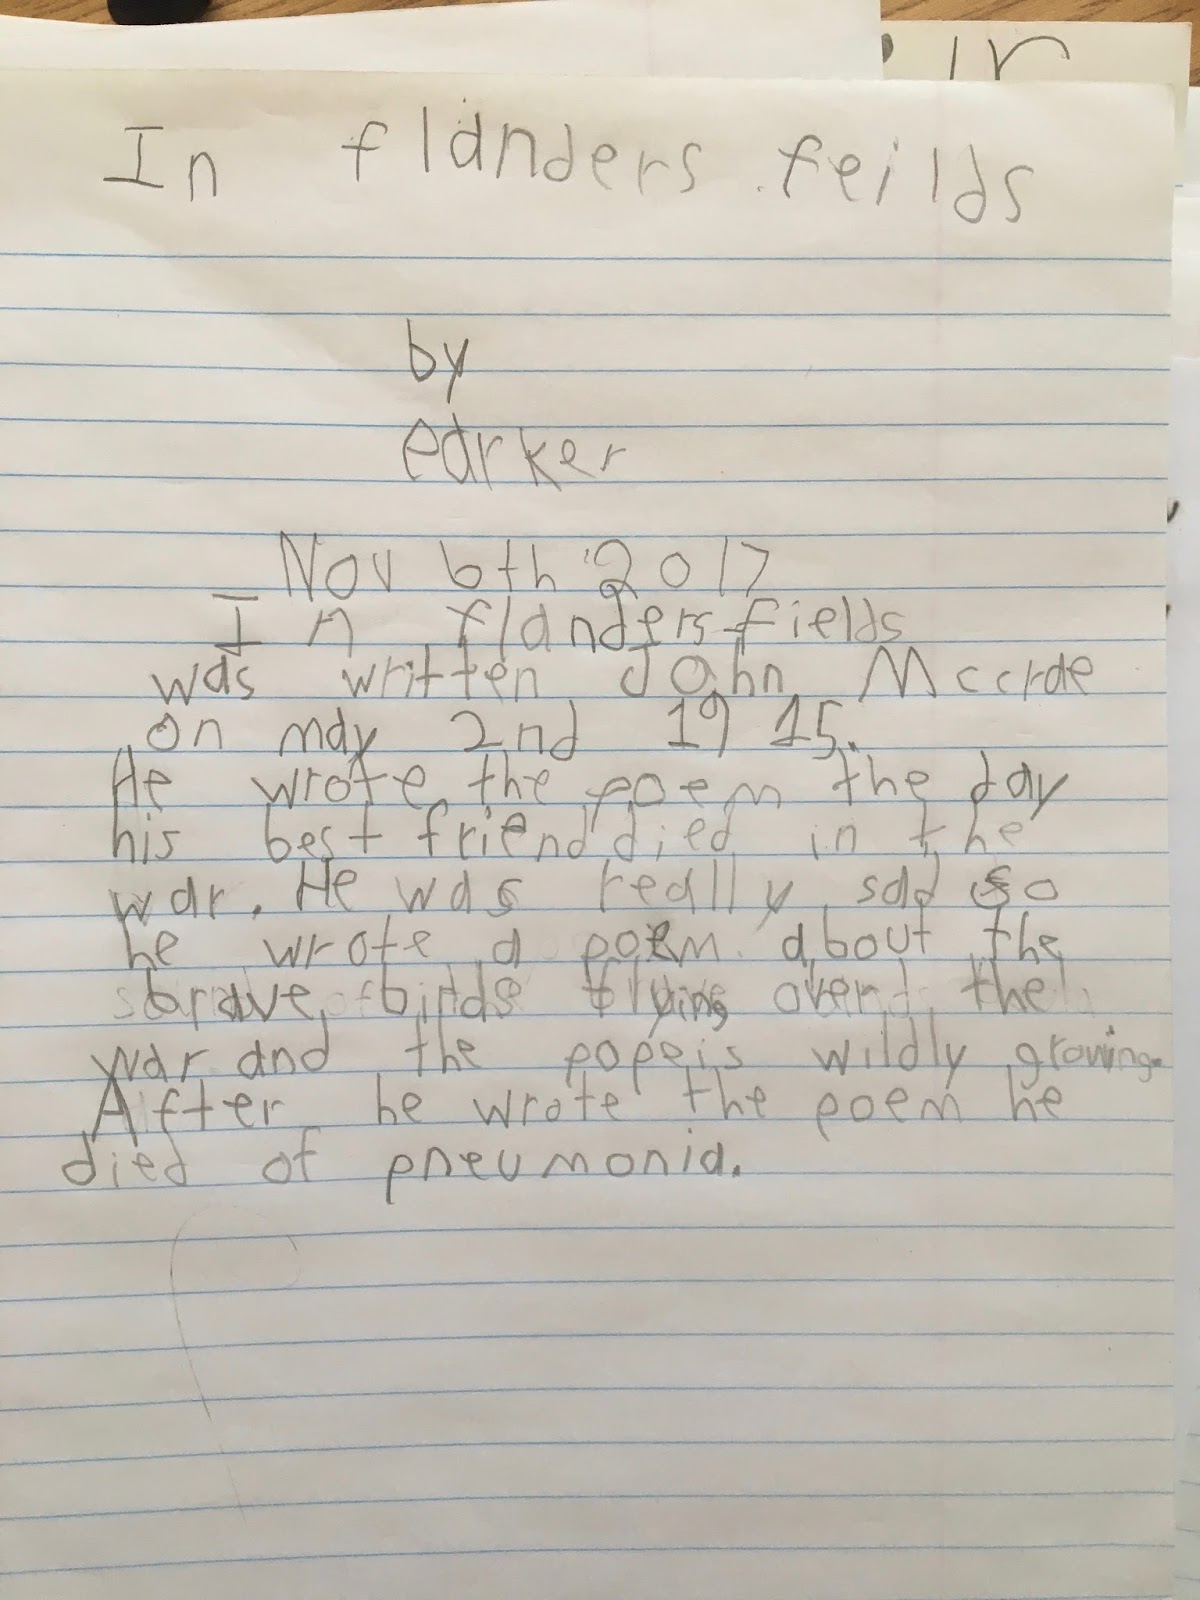 In flanders feilds
by
earker
Nov 6th 2017
In flanders fields
was written John Mccrae
on may 2nd 1915.
He wrote the poem the day
his best friend died in the
war. He was really sad so
he wrote a poem about the
brave birds flying over the
war and the popeis wildly growing.
After he wrote the poem he
died of pneumonia.